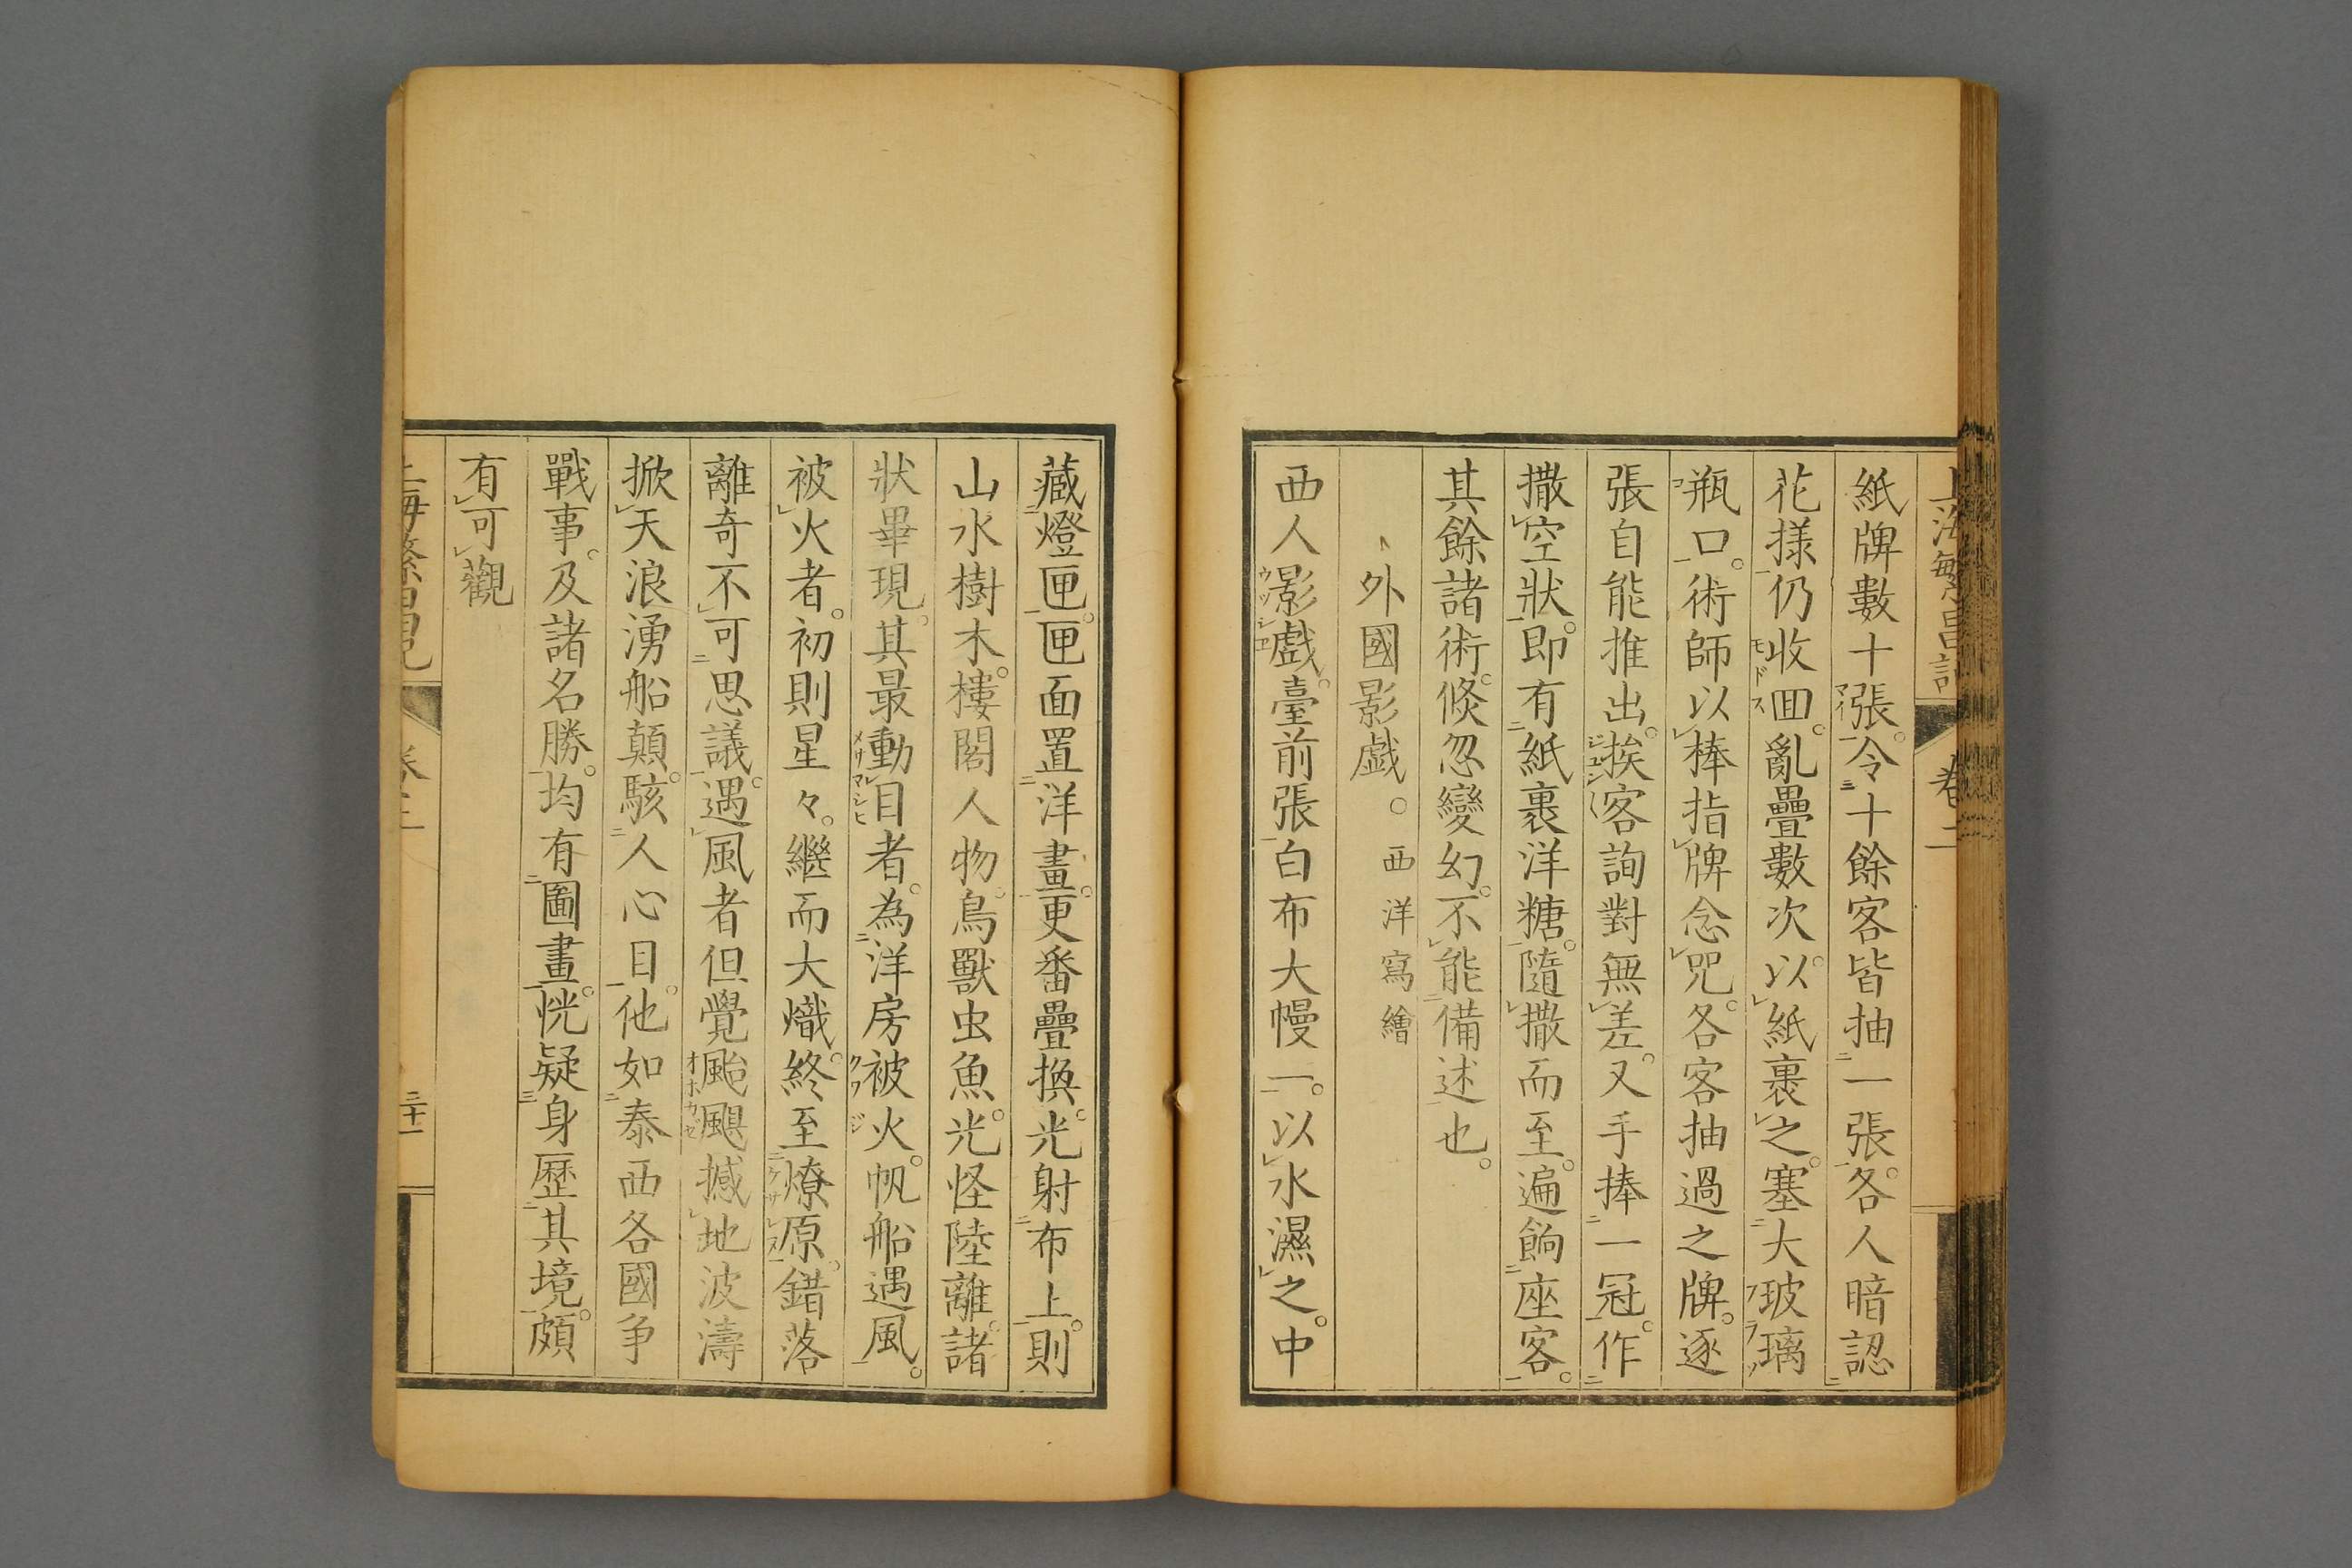 上海繁昌記 卷二
紙牌數十張。令十餘客皆抽一張。各人暗認
花樣仍收回。亂疊數次。以紙裹之。塞大玻璃
瓶口。術師以棒指牌念咒。各客抽過之牌。逐
張自能推出。挨客詢對無差。又手捧一冠。作
撒空狀。即有紙裹洋糖。隨撒而至。遍餉座客。
其餘諸術。倏忽變幻。不能備述也。
外國影戯。西洋寫繪
西人影戲。臺前張白布大幔一。以水濕之。中
藏燈匣。匣面置洋畫。更番疊換。光射布上。則
山水樹木。樓閣人物。鳥獸虫魚。光怪陸離。諸
狀畢現。其最動目者。為洋房被火。帆船遇風。
被火者。初則星々。繼而大熾。終至燎原。錯落
離奇不可思議。遇風者但覺颱颶撼地波濤
掀天浪湧船顛。駭人心目。他如泰西各國争
戰事。及諸名勝。均有圖畫。恍疑身歷其境。頗
有可觀
上海繁昌記 卷二 三十一